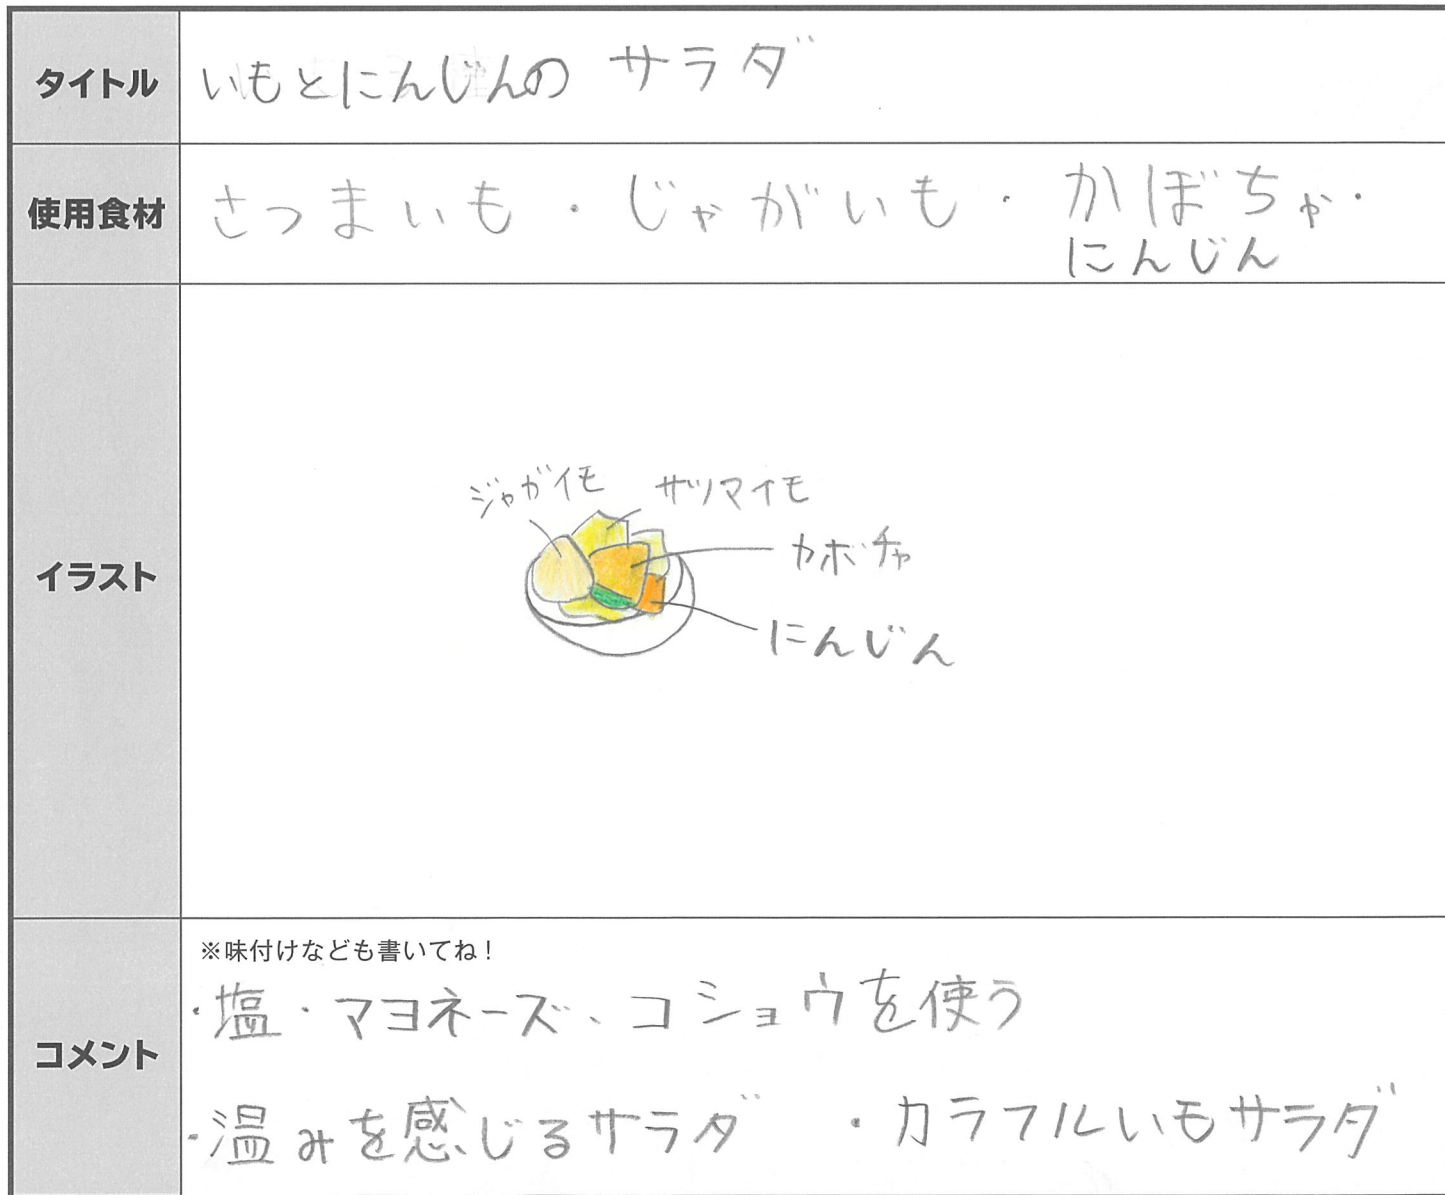 タイトル
いもとにんじんの サラダ
使用食材
さつまいも・じゃがいも・かぼちゃ・
にんじん
イラスト
ジャガイモ サツマイモ
カボチャ
にんじん
コメント
※味付けなども書いてね!
・塩・マヨネーズ、コショウを使う
・温みを感じるサラダ ・カラフルいもサラダ